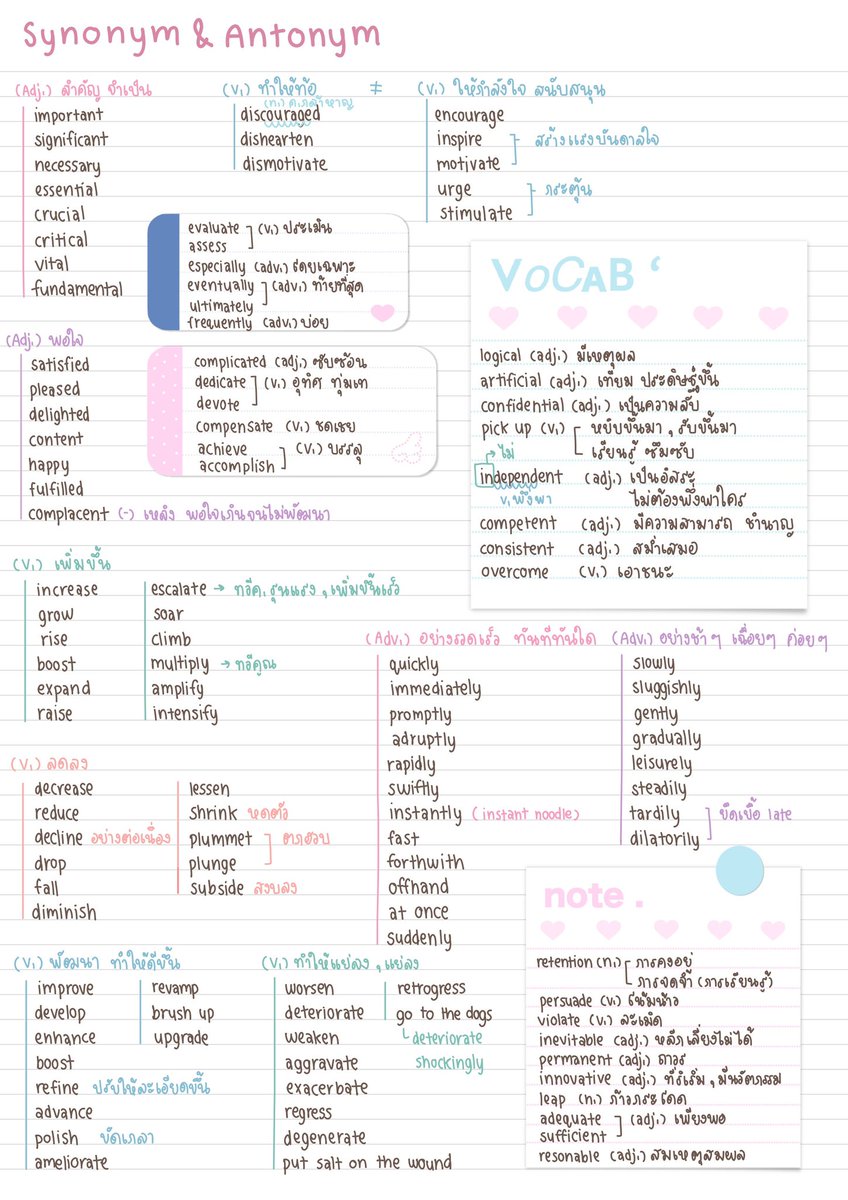 Synonym & Antonym
(Adj.) สำคัญ จำเป็น
important
significant
necessary
essential
crucial
critical
vital
fundamental
(v.) ทำให้ท้อ
(n.) ความกล้าหาญ
discouraged
dishearten
dismotivate
≠
(v.) ให้กำลังใจ สนับสนุน
encourage
inspire
motivate
สร้างแรงบันดาลใจ
urge
stimulate
กระตุ้น
evaluate
assess
(v.) ประเมิน
especially (adv.) โดยเฉพาะ
eventually
ultimately
(adv.) ท้ายที่สุด
frequently (adv.) บ่อย
(Adj.) พอใจ
satisfied
pleased
delighted
content
happy
fulfilled
complacent (-) เหลิง พอใจเกินจนไม่พัฒนา
complicated (adj.) ซับซ้อน
dedicate
devote
(v.) อุทิศ ทุ่มเท
compensate (v.) ชดเชย
achieve
accomplish
(v.) บรรลุ
VOCAB ‘
logical (adj.) มีเหตุผล
artificial (adj.) เทียม ประดิษฐ์ขึ้น
confidential (adj.) เป็นความลับ
pick up (v.) หยิบขึ้นมา , รับขึ้นมา
เรียนรู้ ซึมซับ
ไม่
independent (adj.) เป็นอิสระ
v.พึ่งพา ไม่ต้องพึ่งพาใคร
competent (adj.) มีความสามารถ ชำนาญ
consistent (adj.) สม่ำเสมอ
overcome (v.) เอาชนะ
(v.) เพิ่มขึ้น
increase
grow
rise
boost
expand
raise
escalate → ทวีความรุนแรง , เพิ่มขึ้นเร็ว
soar
climb
multiply → ทวีคูณ
amplify
intensify
(Adv.) อย่างรวดเร็ว ทันทีทันใด
quickly
immediately
promptly
adruptly
rapidly
swiftly
instantly (instant noodle)
fast
forthwith
offhand
at once
suddenly
(Adv.) อย่างช้าๆ เฉื่อยๆ ค่อยๆ
slowly
sluggishly
gently
gradually
leisurely
steadily
tardily
dilatorily
ยืดเยื้อ late
(v.) ลดลง
decrease
reduce
decline อย่างต่อเนื่อง
drop
fall
diminish
lessen
shrink หดตัว
plummet
plunge
ตกฮวบ
subside สงบลง
(v.) พัฒนา ทำให้ดีขึ้น
improve
develop
enhance
boost
refine ปรับให้ละเอียดขึ้น
advance
polish ขัดเกลา
ameliorate
revamp
brush up
upgrade
(v.) ทำให้แย่ลง , แย่ลง
worsen
deteriorate
weaken
aggravate
exacerbate
regress
degenerate
put salt on the wound
retrogress
go to the dogs
deteriorate
shockingly
note .
retention (n.) การคงอยู่
การจดจำ (การเรียนรู้)
persuade (v.) โน้มน้าว
violate (v.) ละเมิด
inevitable (adj.) หลีกเลี่ยงไม่ได้
permanent (adj.) ถาวร
innovative (adj.) ที่ริเริ่ม , มีนวัตกรรม
leap (n.) ก้าวกระโดด
adequate
sufficient
(adj.) เพียงพอ
resonable (adj.) สมเหตุสมผล